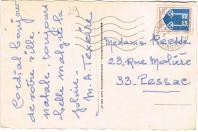 Cordial bonjour
de notre ville
natale toujours
belle malgré la
pluie.
M.A. Texxxx
Madame
23, Rue Molière
33. Pessac